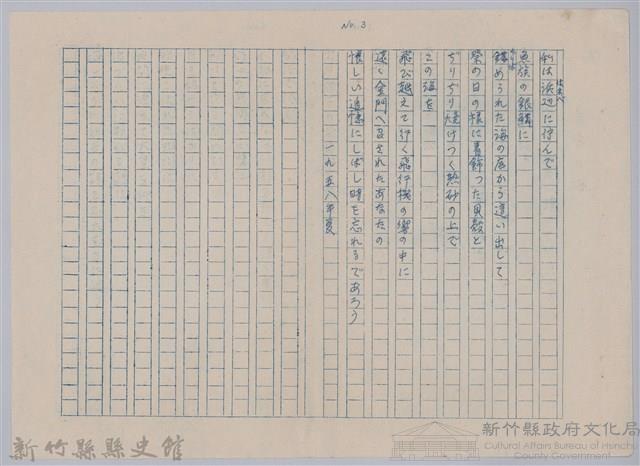 No. 3
私は浜辺に佇んで
たたずん
魚族の銀鱗に
鏤められた海の底から這い出して
祭の日の様に着飾った貝殻と
ぢりぢり焼けつく熱砂の上で
この海を
飛び越えて行く飛行機の響の中に
遠く金門へ
されたあなたの
懐しい追憶にしばし時を忘れるであろう
一九五八年夏
新竹縣縣史館
新竹縣政府文化局
Cultural Affairs Bureau of Hsinchu
County Government